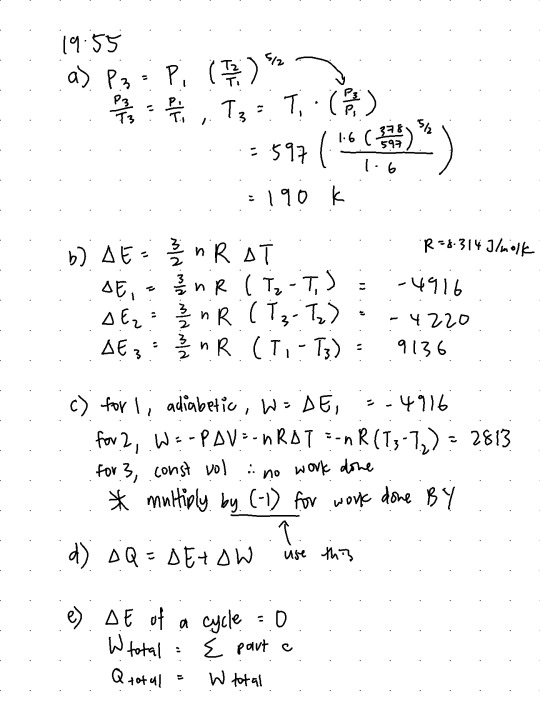 19.55
a) P3 = P1 (T2/T1)^5/2
P3/T3 = P1/T1 , T3 = T1 · (P3/P1)
= 597 ( 1.6 (378/597)^5/2 / 1.6 )
= 190 k
b) ΔE = 3/2 n R ΔT R = 8.314 J/mol/k
ΔE1 = 3/2 n R (T2 - T1) = -4916
ΔE2 = 3/2 n R (T3 - T2) = -4220
ΔE3 = 3/2 n R (T1 - T3) = 9136
c) for 1, adiabetic, W = ΔE1 = -4916
for 2, W = -PΔV = -nRΔT = -nR(T3-T2) = 2813
for 3, const vol ∴ no work done
* multiply by (-1) for work done BY
d) ΔQ = ΔE + ΔW use this
e) ΔE of a cycle = 0
W total = Σ part c
Q total = W total